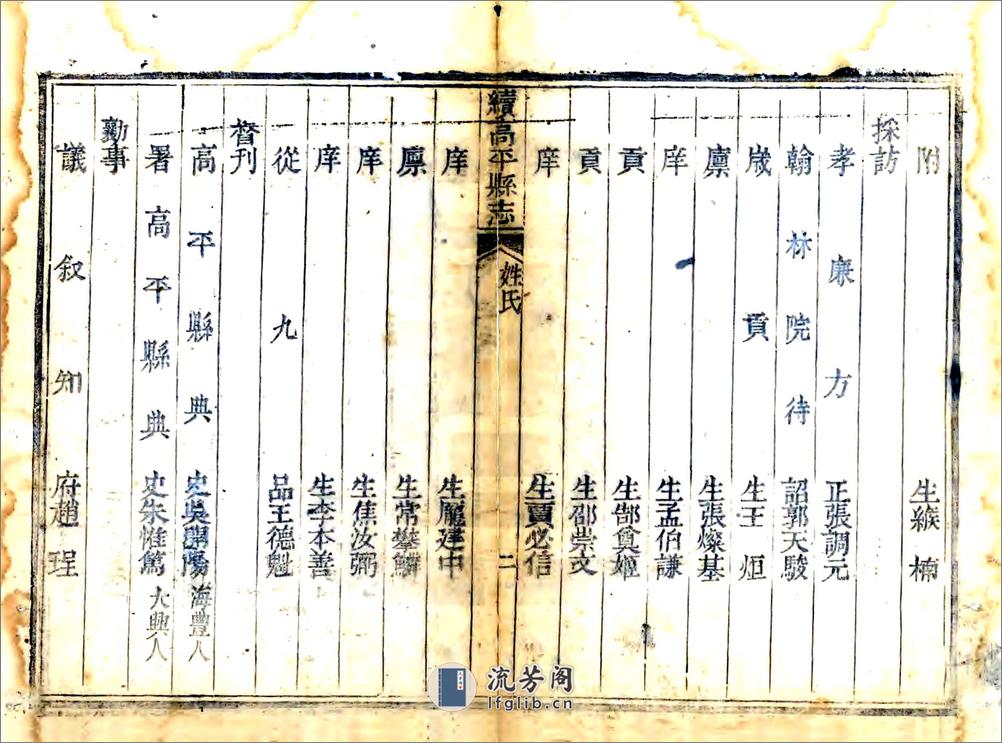 附生緱楠
採訪
孝廉方正張調元
翰林院待詔郭天駿
歲貢生王炬
廩生張燦基
庠生孟伯謙
貢生郜奠姬
貢生邵崇文
庠生賈必信
續高平縣志
姓氏
二
庠生龐建中
廩生常鰲麟
庠生焦汝弼
庠生李本善
從九品王德魁
督刊
高平縣典史吳開陽海豐人
署高平縣典史朱惟篤大興人
勷事
議叙知府趙珵
流芳阁
lfglib.cn